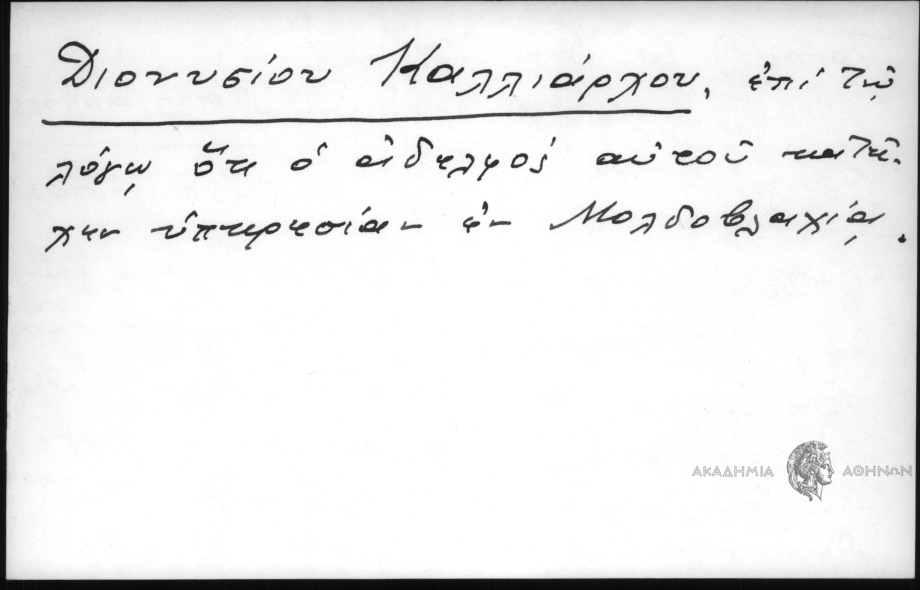 Διονυσίου Καλλιάρχου, ἐπὶ τῷ
λόγῳ ὅτι ὁ ἀδελφός αὐτοῦ κατεῖ-
χεν ὑπηρεσίαν ἐν Μολδοβλαχίᾳ.
ΑΚΑΔΗΜΙΑ ΑΘΗΝΩΝ